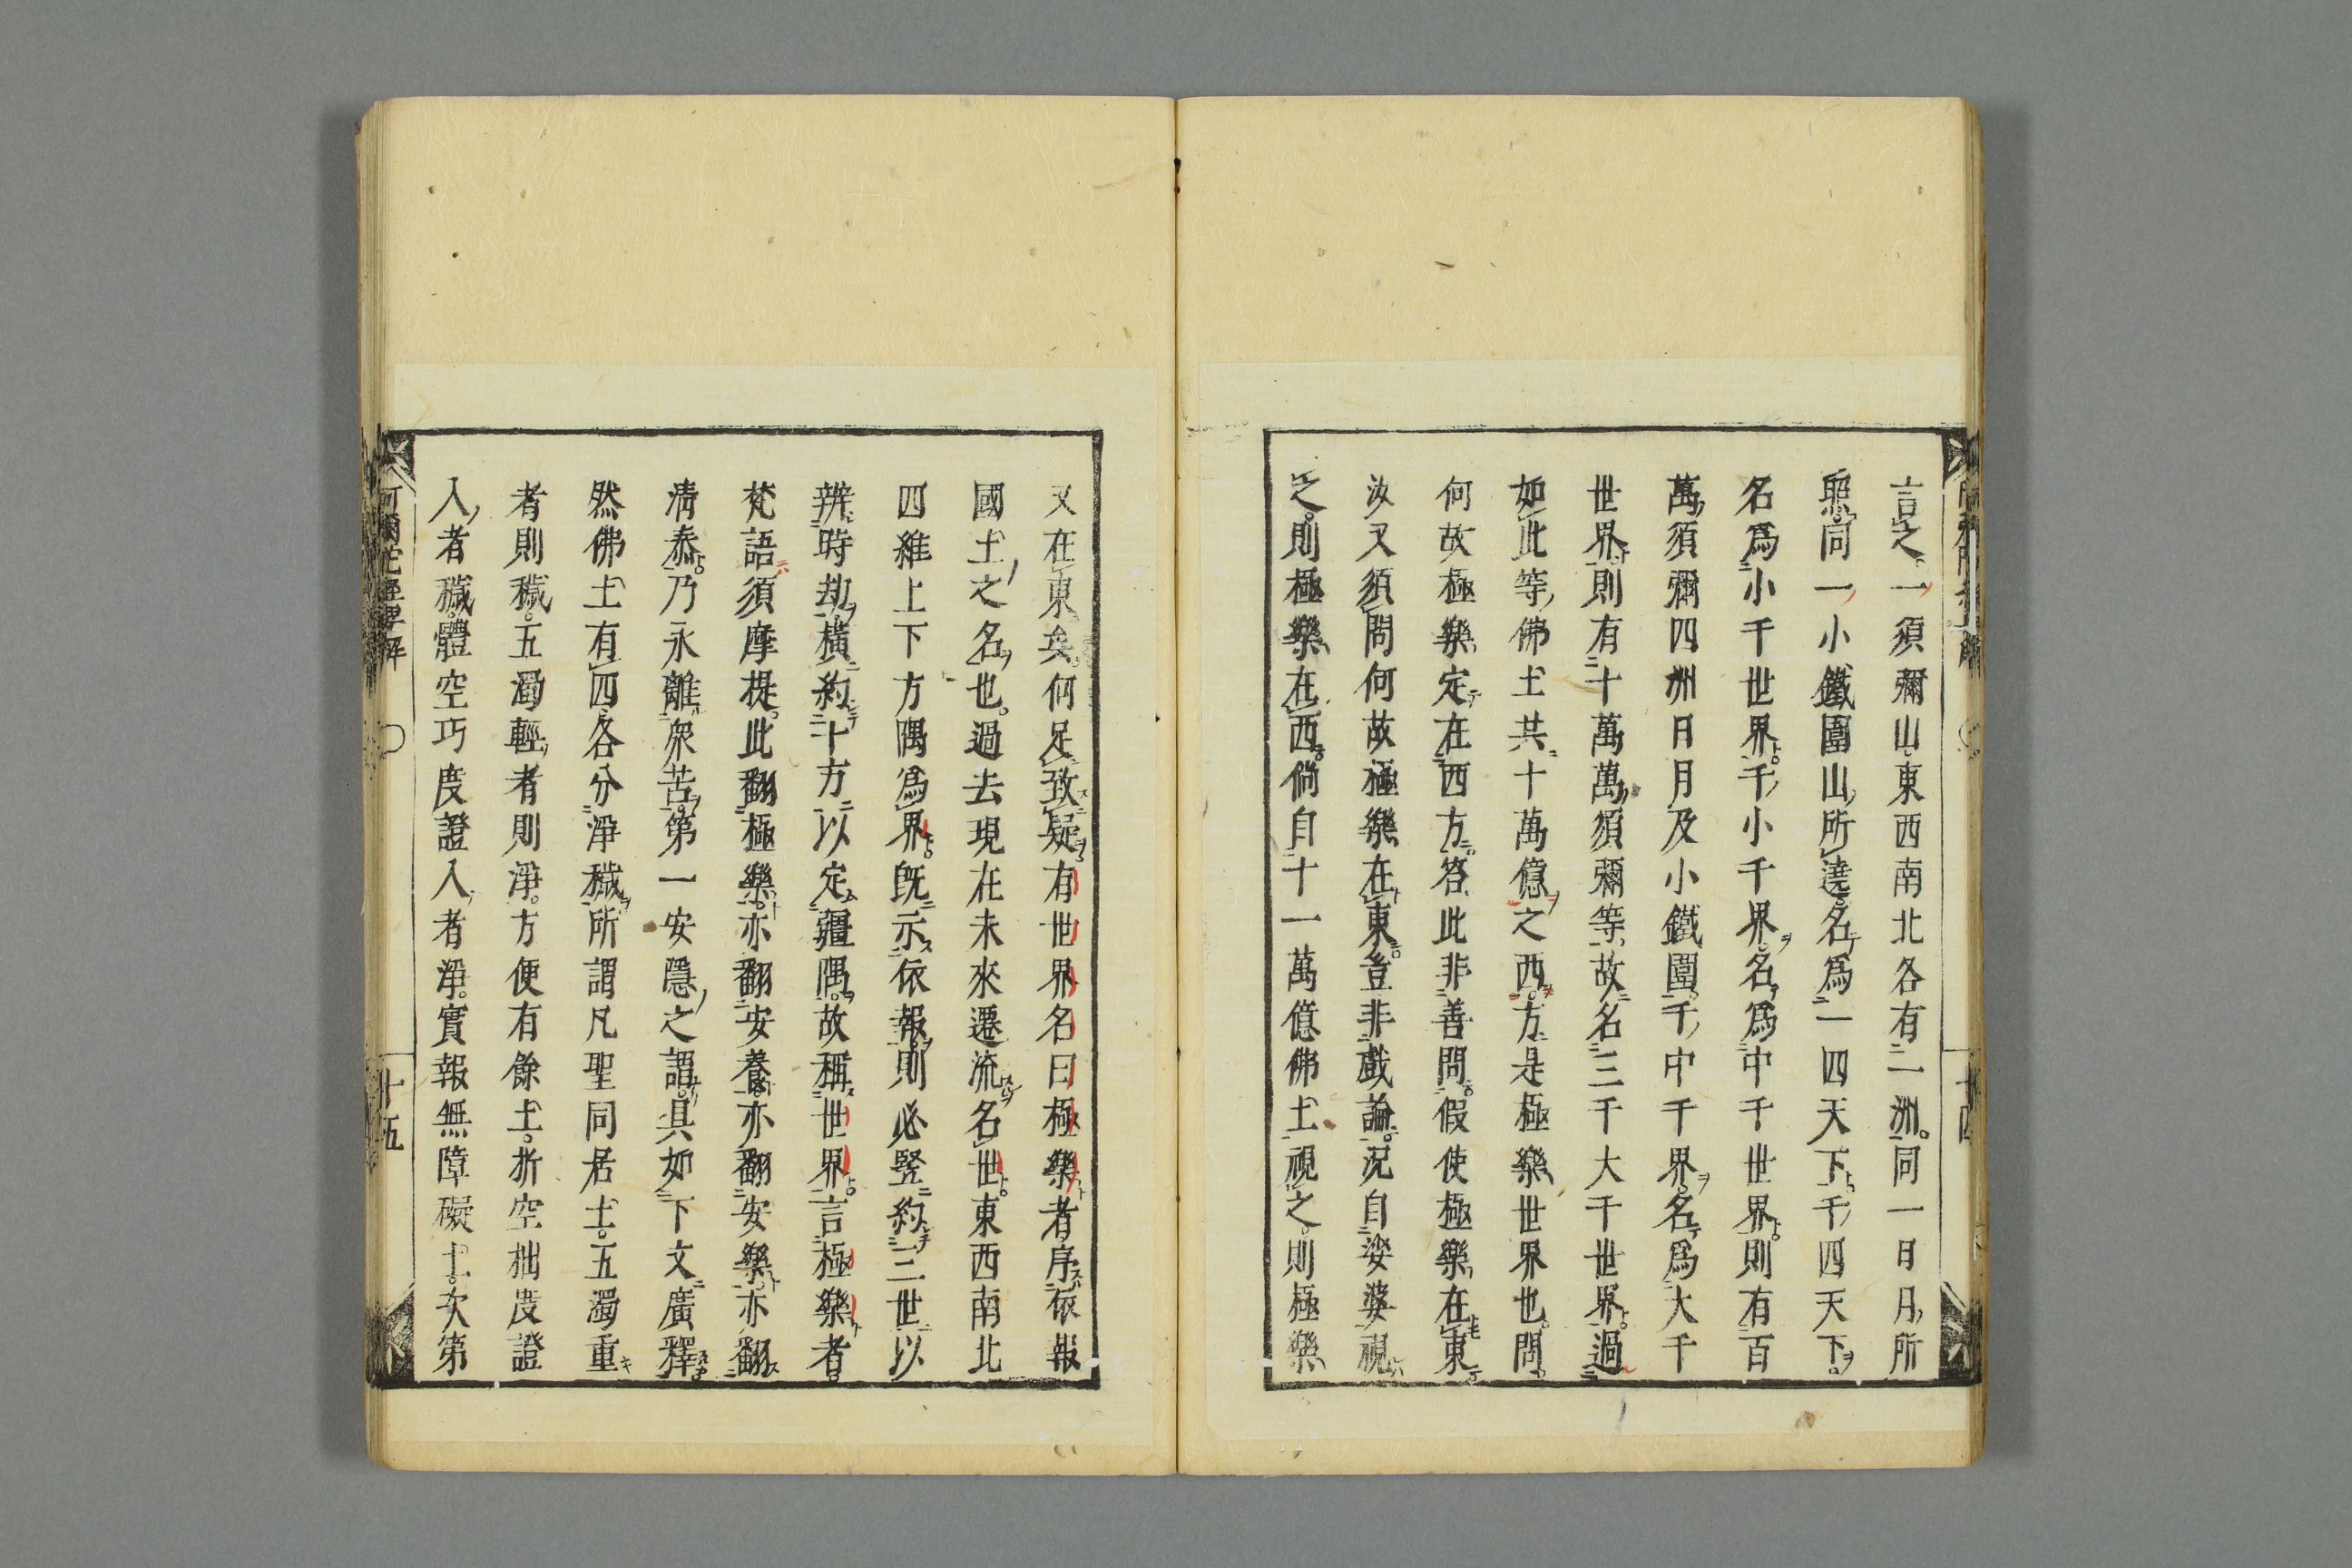 言之。一須彌山東西南北各有二洲。同一日月所
照。同一小鐵圍山所遶。名爲一四天下。千四天下。
名爲小千世界。千小千界。名爲中千世界。則有百
萬須彌四洲日月及小鐵圍。千中千界。名爲大千
世界。則有十萬萬須彌等。故名三千大千世界。過
如此等佛土共十萬億之西。方是極樂世界也。問。
何故極樂定在西方。答。此非善問。假使極樂在東。
汝又須問何故極樂在東。豈非戲論。況自娑婆視
之。則極樂在西。倘自十一萬億佛土視之。則極樂
又在東矣。何足致疑。有世界名曰極樂者。序依報
國土之名也。過去現在未來遷流名世。東西南北
四維上下方隅爲界。既示依報。則必豎約三世以
辨時劫。橫約十方以定疆隅。故稱世界。言極樂者。
梵語須摩提。此翻極樂。亦翻安養。亦翻安樂。亦翻
清泰。乃永離衆苦。第一安隱之謂。具如下文廣釋。
然佛土有四。各分淨穢。所謂凡聖同居土。五濁重
者則穢。五濁輕者則淨。方便有餘土。析空拙度證
入者穢。體空巧度證入者淨。實報無障礙土。次第
阿彌陀經要解
十五